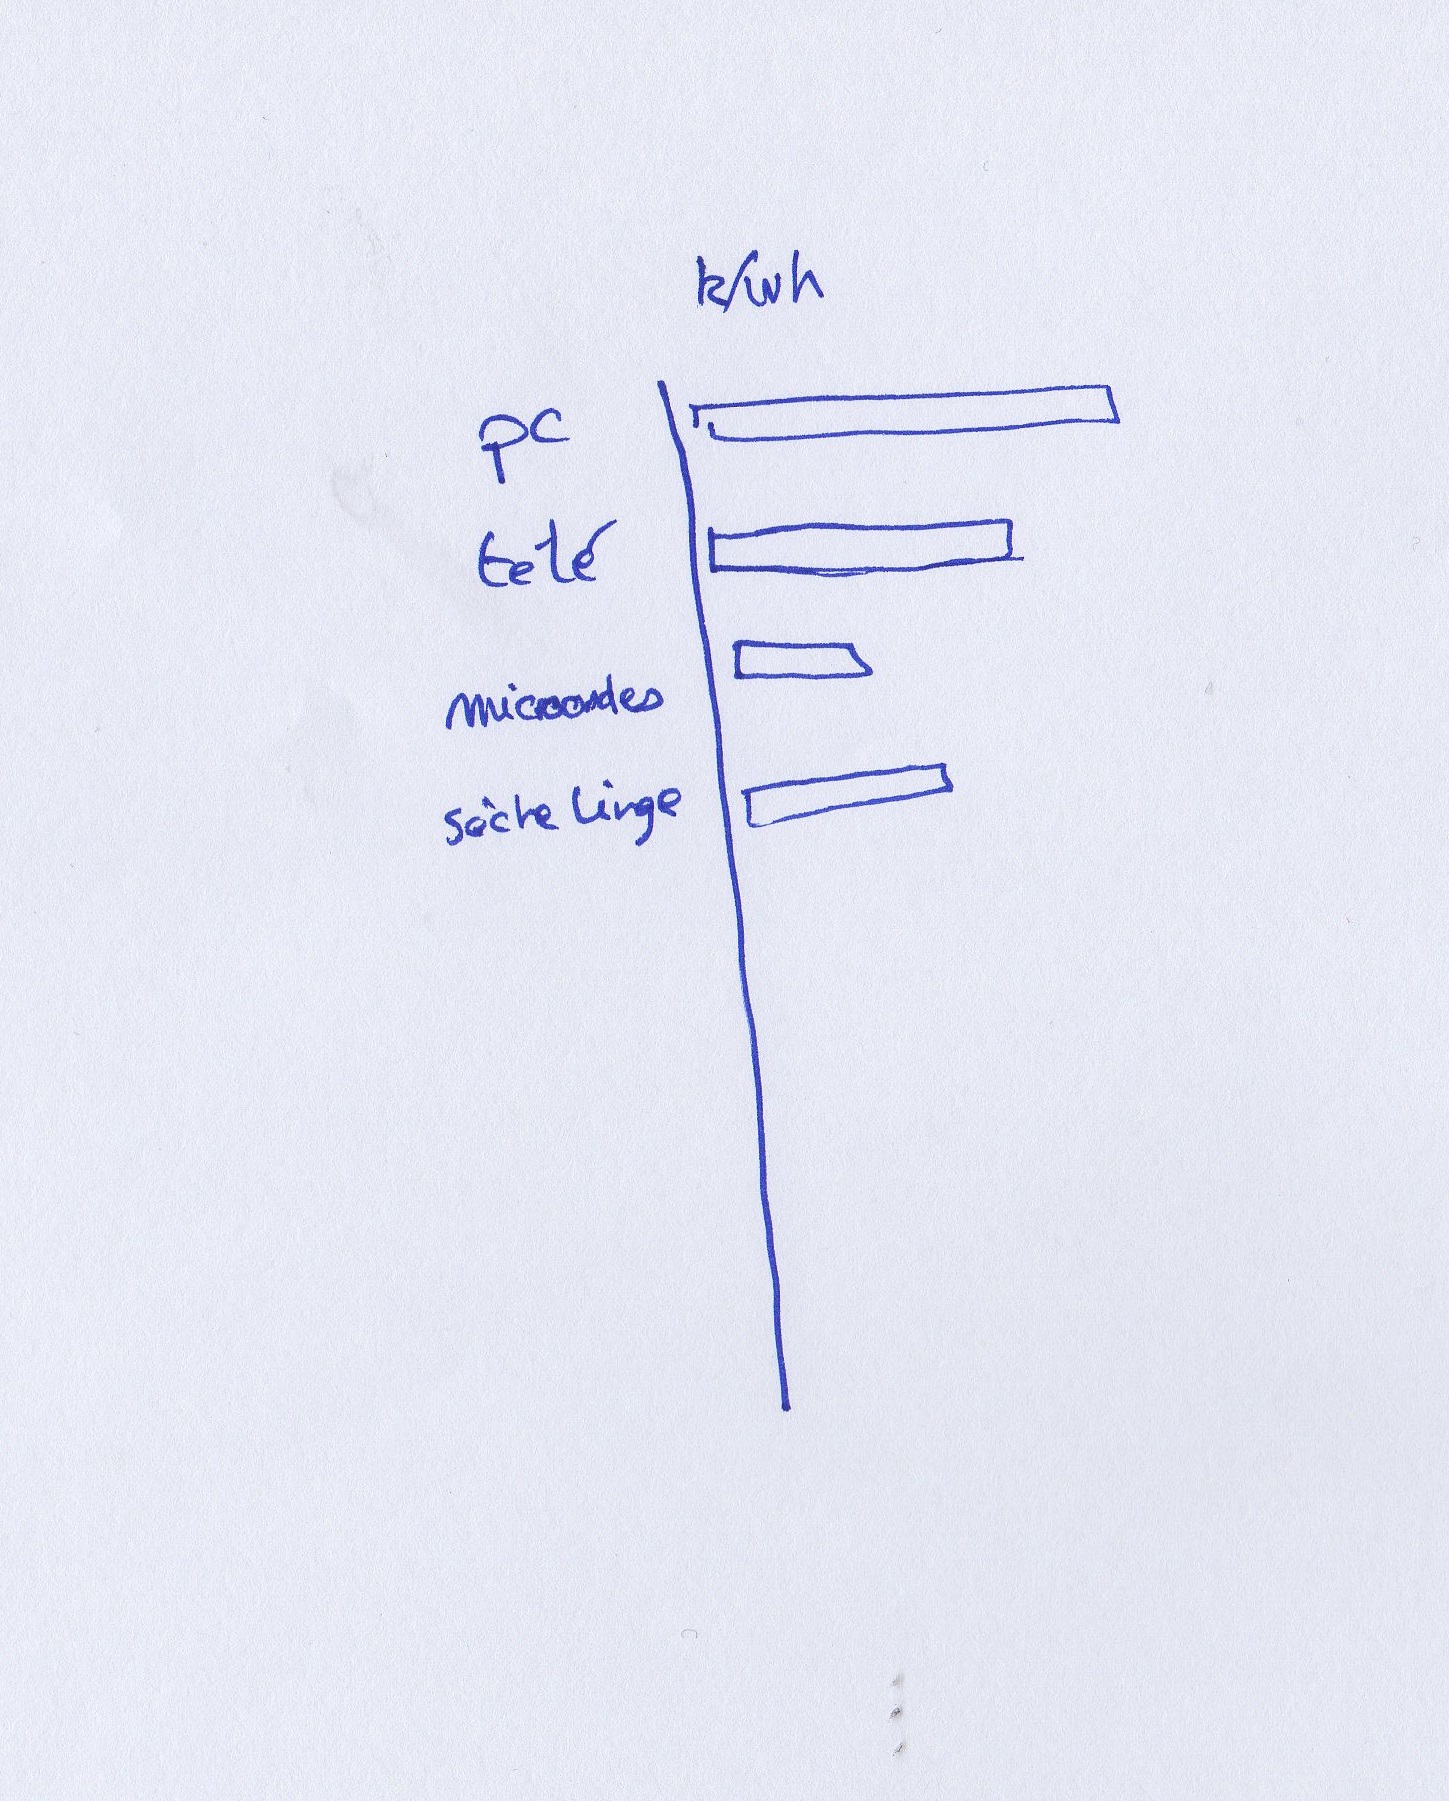 k/wh
pc
telé
microondes
sèche linge